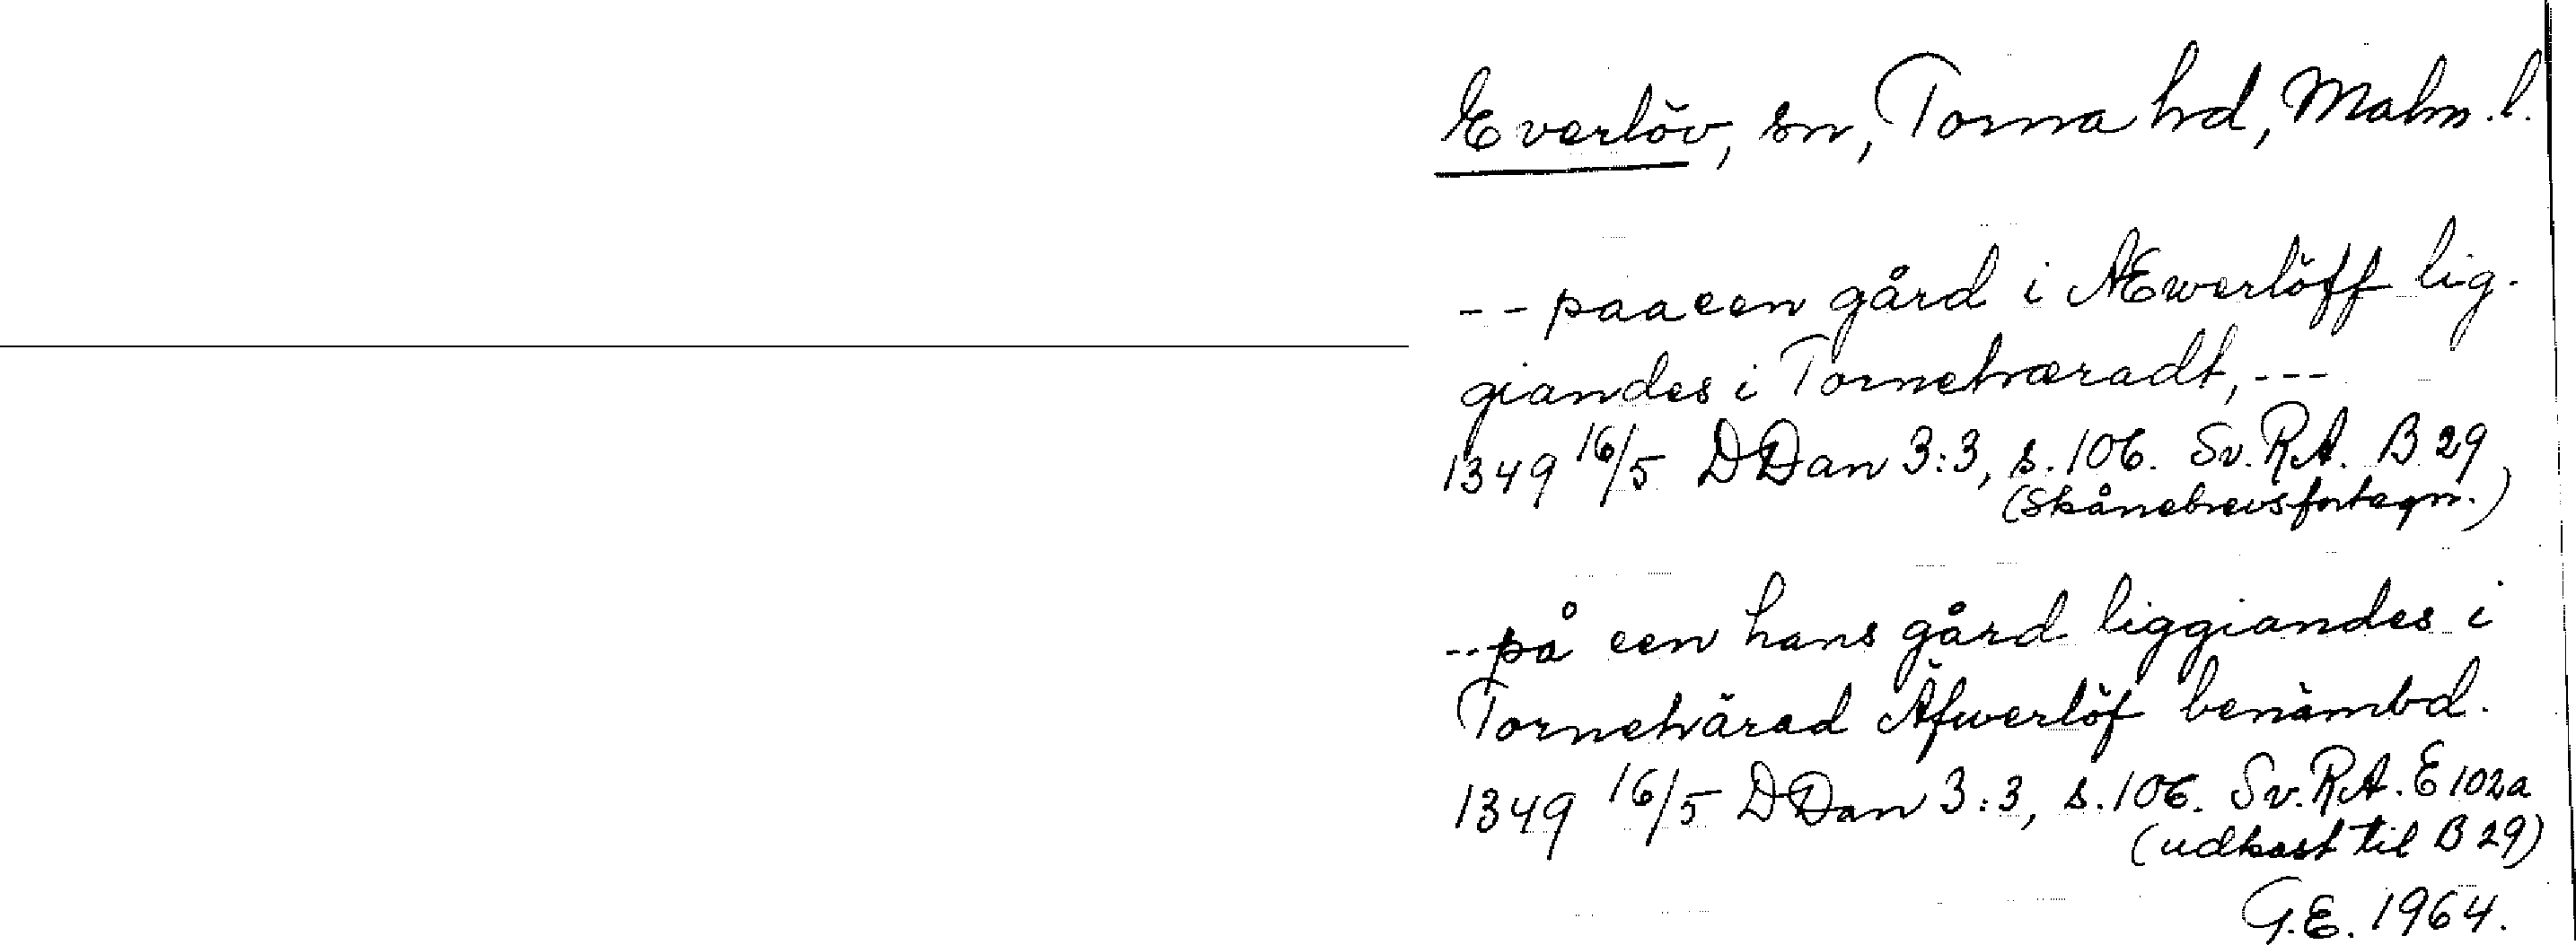 Everlöv, sn, Torna hd, Malm. l.
-- paa een gård i AEwerlöff lig-
giandes i Tornehæradt, ---
1349 16/5 DDan 3:3, s. 106. Sv. RA. B 29
(Skånebrevsfortegn.)
-- på een hans gård liggiandes i
Tornehärad Äfwerlöf benämbd.
1349 16/5 DDan 3:3, s. 106. Sv. RA. E 102a
(udkast til B 29)
G.E. 1964.